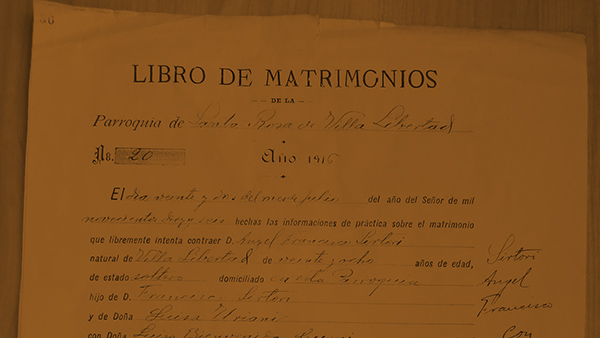 36
LIBRO DE MATRIMONIOS
DE LA
Parroquia de Santa Rosa de Villa Libertad
No. 20 Año 1916
El día veinte y dos del mes julio del año del Señor de mil
novecientos diez y seis hechas las informaciones de práctica sobre el matrimonio
que libremente intenta contraer D. Angel Francisco Sertori
natural de Villa Libertad de veinte y ocho años de edad,
de estado soltero domiciliado en esta Parroquia
hijo de D. Francisco Sertori
y de Doña Luisa
con Doña Luisa Bienvenida
Sertori
Angel
Francisco
con